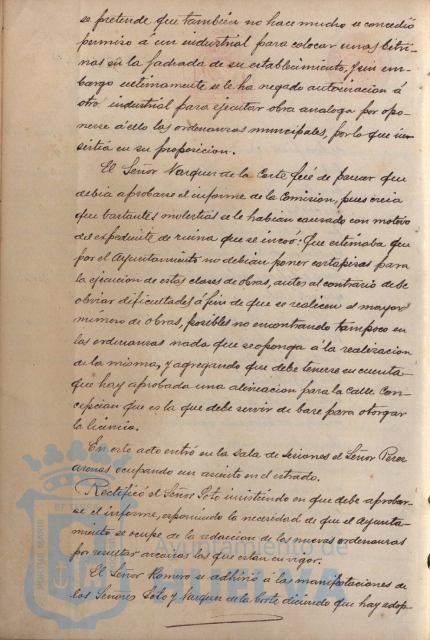 se pretende que tambien no hace mucho se concedió
permiso á un industrial para colocar unas bitri-
nas en la fachada de su establecimiento, y sin em-
bargo ultimamente se le ha negado autorizacion á
otro industrial para ejecutar obra analoga por opo-
nerse á ello las ordenanzas municipales, por lo que in-
sistia en su proposicion.
El Señor Vazquez de la Corte fué de parecer que
debia aprobarse el informe de la Comision, pues creia
que bastantes molestias se le habian causado con motivo
del expediente de ruina que se incoó: Que estimaba que
por el Ayuntamiento no debian poner cortapisas para
la ejecucion de estas clases de obras, antes al contrario debe
obviar dificultades á fin de que se realicen el mayor
número de obras, posibles no encontrando tampoco en
las ordenanzas nada que se oponga á la realizacion
de la misma, y agregando que debe tenerse en cuenta
que hay aprobada una alineacion para la calle Con-
cepcion que es la que debe servir de base para otorgar
la licencia.
En este acto entró en la sala de sesiones el Señor Perez
Arenas ocupando un asiento en el estrado.
Rectificó el Señor Soto insistiendo en que debe aprobar-
se el informe, exponiendo la necesidad de que el Ayunta-
miento se ocupe de la redaccion de las nuevas ordenanzas
por resultar arcaicas las que estan en vigor.
El Señor Romero se adhirió á las manifestaciones de
los Señores Soto y Vazquez de la Corte diciendo que hay adop-
Ayuntamiento de
HUELVA